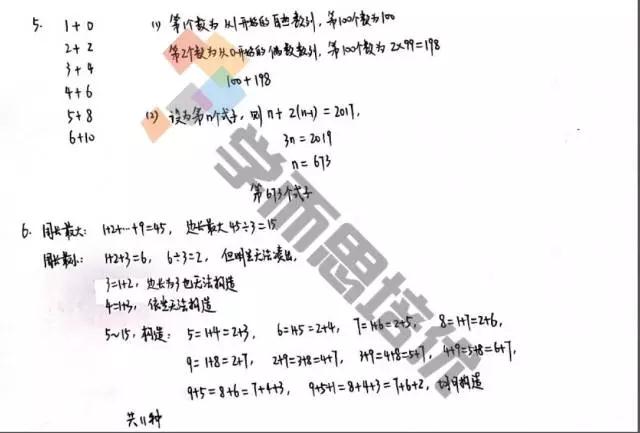 5. 1+0 (1) 第1个数为从1开始的自然数列，第100个数为100
2+2 第2个数为从0开始的偶数数列，第100个数为2×99=198
3+4 100+198
4+6
5+8 (2) 设为第n个式子，则n+2(n-1)=2017，
6+10 3n=2019
n=673
第673个式子
6. 周长最大：1+2+…+9=45，边长最大45÷3=15
周长最小：1+2+3=6，6÷3=2，但明显无法凑出，
3=1+2，边长为3也无法构造
4=1+3，依然无法构造
5~15，构造：5=1+4=2+3，6=1+5=2+4，7=1+6=2+5，8=1+7=2+6，
9=1+8=2+7，2+9=3+8=4+7，3+9=4+8=5+7，4+9=5+8=6+7，
9+5=8+6=7+4+3，9+5+1=8+4+3=7+6+2，均可构造
共11种
学而思培优